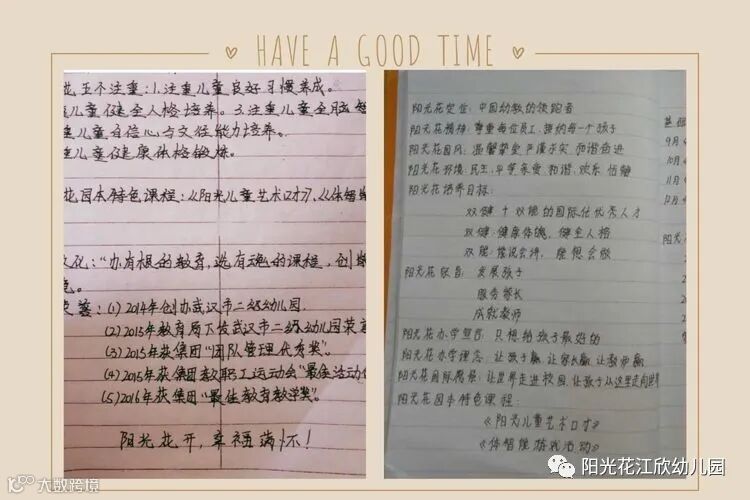 HAVE A GOOD TIME
花五个注重:1.注重儿童良好习惯养成。
儿童健全人格培养。3.注重儿童全脑
儿童自信心与交往能力培养。
儿童健康体格锻炼。
花园本特色课程:《阳光儿童艺术口才》,《体智能
文化:“办有根的教育,选有魂的课程,创
(1)2014年创办武汉市二级幼儿园.
(2)2015年教育局下发武汉市二级幼儿园
(3)2015年获集团“团队管理优秀奖”.
(4)2015年获集团教职工运动会“最佳活动
(5)2016年获集团“最佳教育教学奖”.
阳光花开,幸福满怀!
阳光花定位:中国幼教的领跑者
阳光花精神:尊重每位员工,善待每一个孩子
阳光花园风:温馨挚爱 严谨求实 和谐奋进
阳光花环境:民主,平等,和谐,欢乐
阳光花培养目标:
双健+双能的国际化优秀人才
双健:健康体魄,健全人格
双能:能说会讲,能想会做
阳光花宗旨:发展孩子
服务家长
成就教师
阳光花办学誓言:只想给孩子最好的
阳光花办学理念:让孩子赢,让家长赢,让教师赢
阳光花国际愿景:让世界走进校园,让孩子从这里走向世界
阳光花园本特色课程:
《阳光儿童艺术口才》
《体智能游戏活动》
9月
10月
11月
12月
阳光花江欣幼儿园
大数跨境